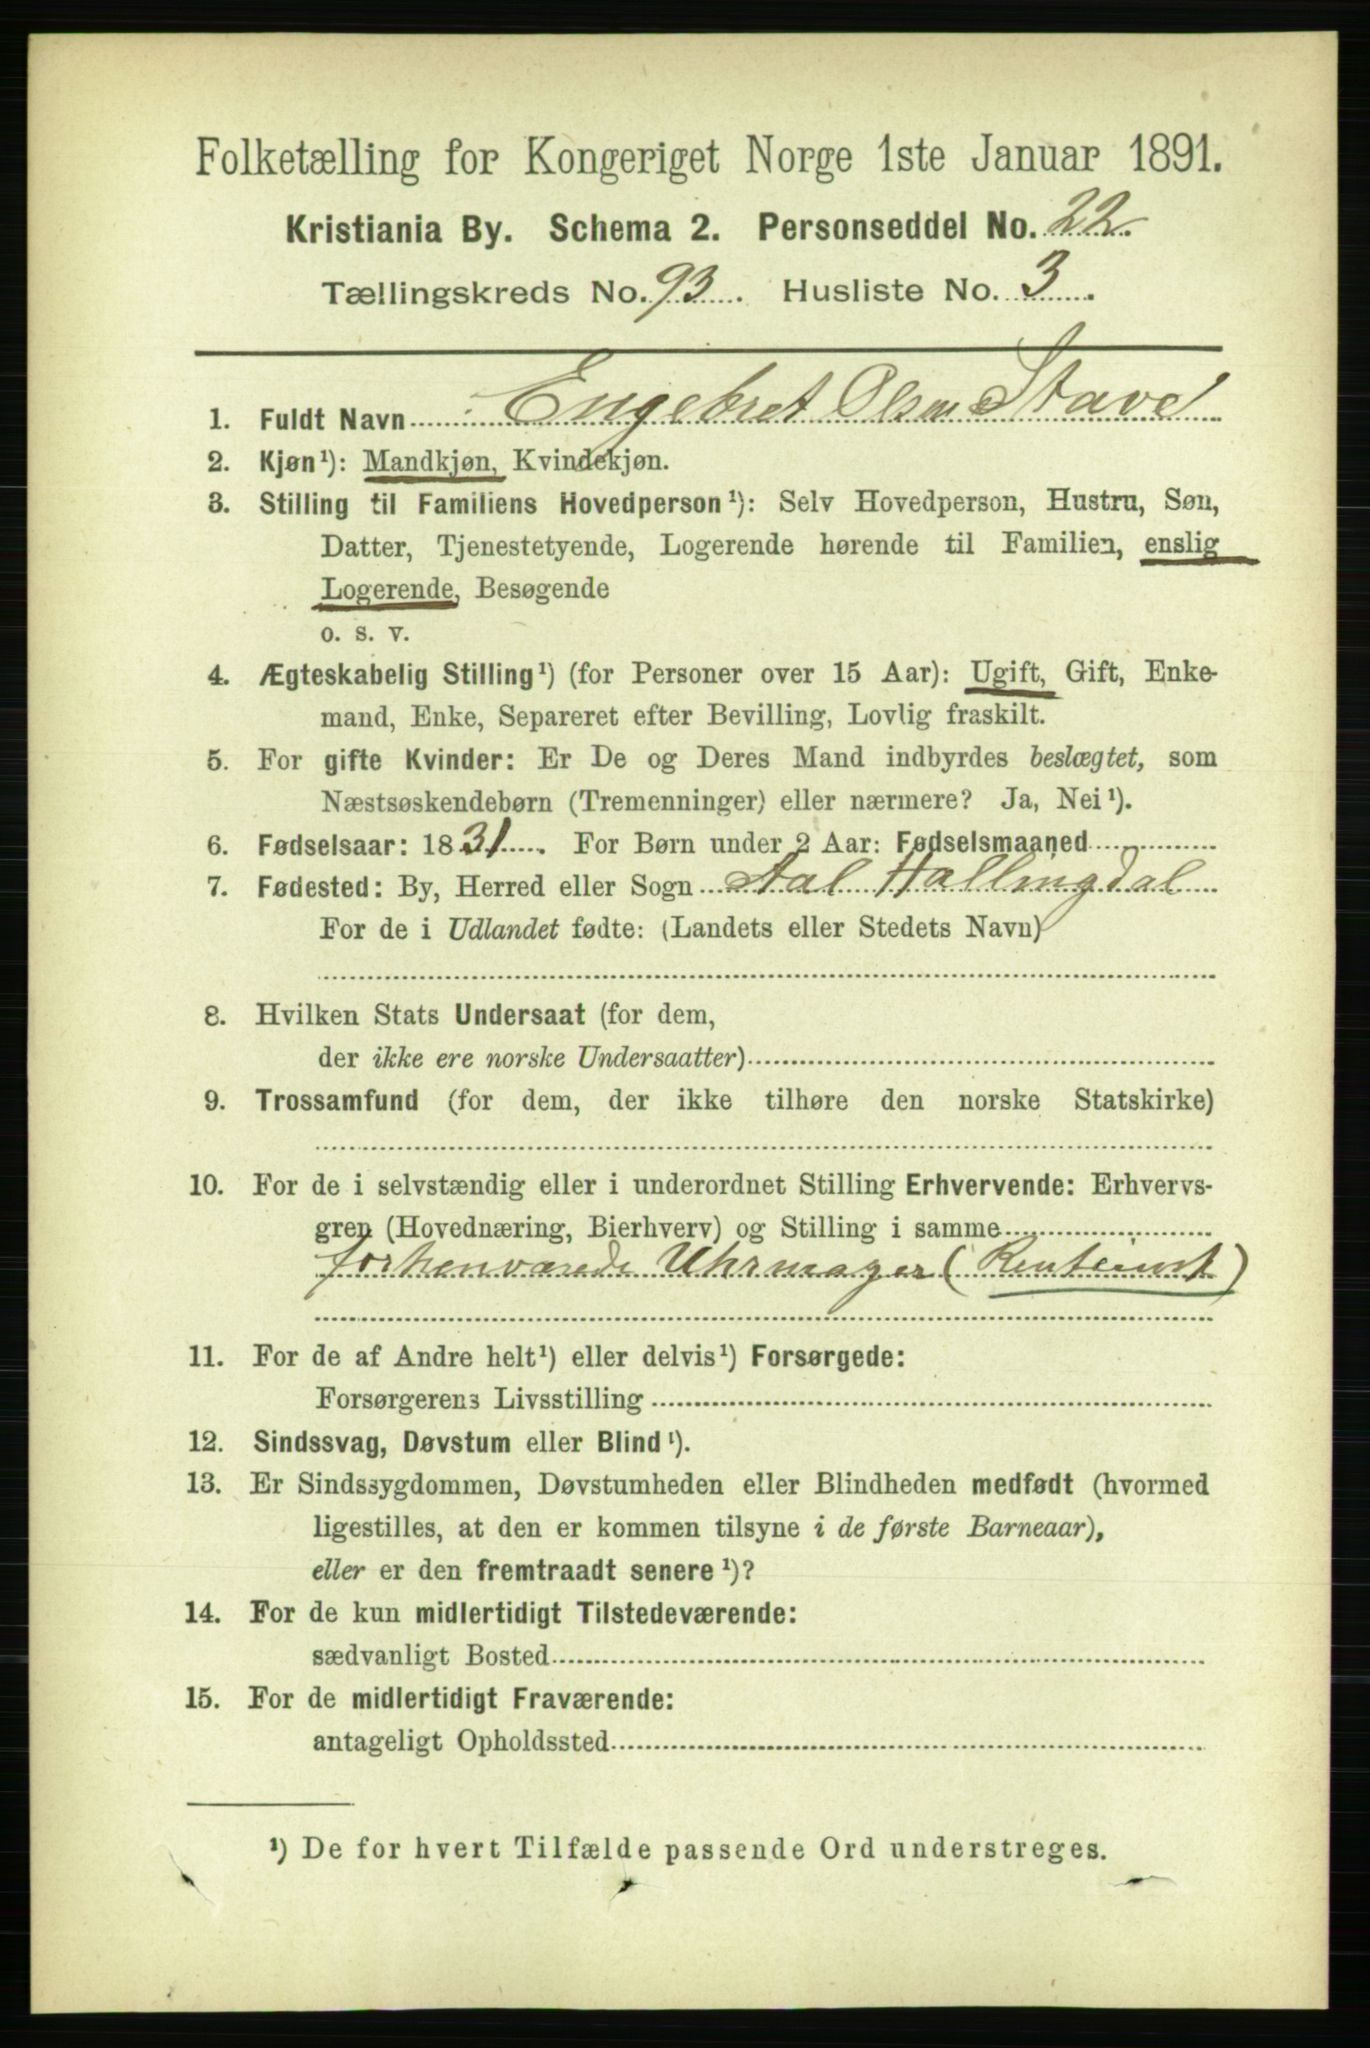 Folketælling for Kongeriget Norge 1ste Januar 1891.
Kristiania By. Schema 2. Personseddel No. 22.
Tællingskreds No. 93. Husliste No. 3.
1. Fuldt Navn Engebret Olsen Stave
2. Kjøn¹): Mandkjøn, Kvindekjøn.
3. Stilling til Familiens Hovedperson¹): Selv Hovedperson, Hustru, Søn,
Datter, Tjenestetyende, Logerende hørende til Familien, enslig
Logerende, Besøgende
o. s. v.
4. Ægteskabelig Stilling¹) (for Personer over 15 Aar): Ugift, Gift, Enke-
mand, Enke, Separeret efter Bevilling, Lovlig fraskilt.
5. For gifte Kvinder: Er De og Deres Mand indbyrdes beslægtet, som
Næstsøskendebørn (Tremenninger) eller nærmere? Ja, Nei¹).
6. Fødselsaar: 1831. For Børn under 2 Aar: Fødselsmaaned
7. Fødested: By, Herred eller Sogn Aal Hallingdal
For de i Udlandet fødte: (Landets eller Stedets Navn)
8. Hvilken Stats Undersaat (for dem,
der ikke ere norske Undersaatter)
9. Trossamfund (for dem, der ikke tilhøre den norske Statskirke)
10. For de i selvstændig eller i underordnet Stilling Erhvervende: Erhvervs-
gren (Hovednæring, Bierhverv) og Stilling i samme
forhenværede Uhrmager (Rentenist)
11. For de af Andre helt¹) eller delvis¹) Forsørgede:
Forsørgerens Livsstilling
12. Sindssvag, Døvstum eller Blind¹).
13. Er Sindssygdommen, Døvstumheden eller Blindheden medfødt (hvormed
ligestilles, at den er kommen tilsyne i de første Barneaar),
eller er den fremtraadt senere¹)?
14. For de kun midlertidigt Tilstedeværende:
sædvanligt Bosted
15. For de midlertidigt Fraværende:
antageligt Opholdssted
¹) De for hvert Tilfælde passende Ord understreges.